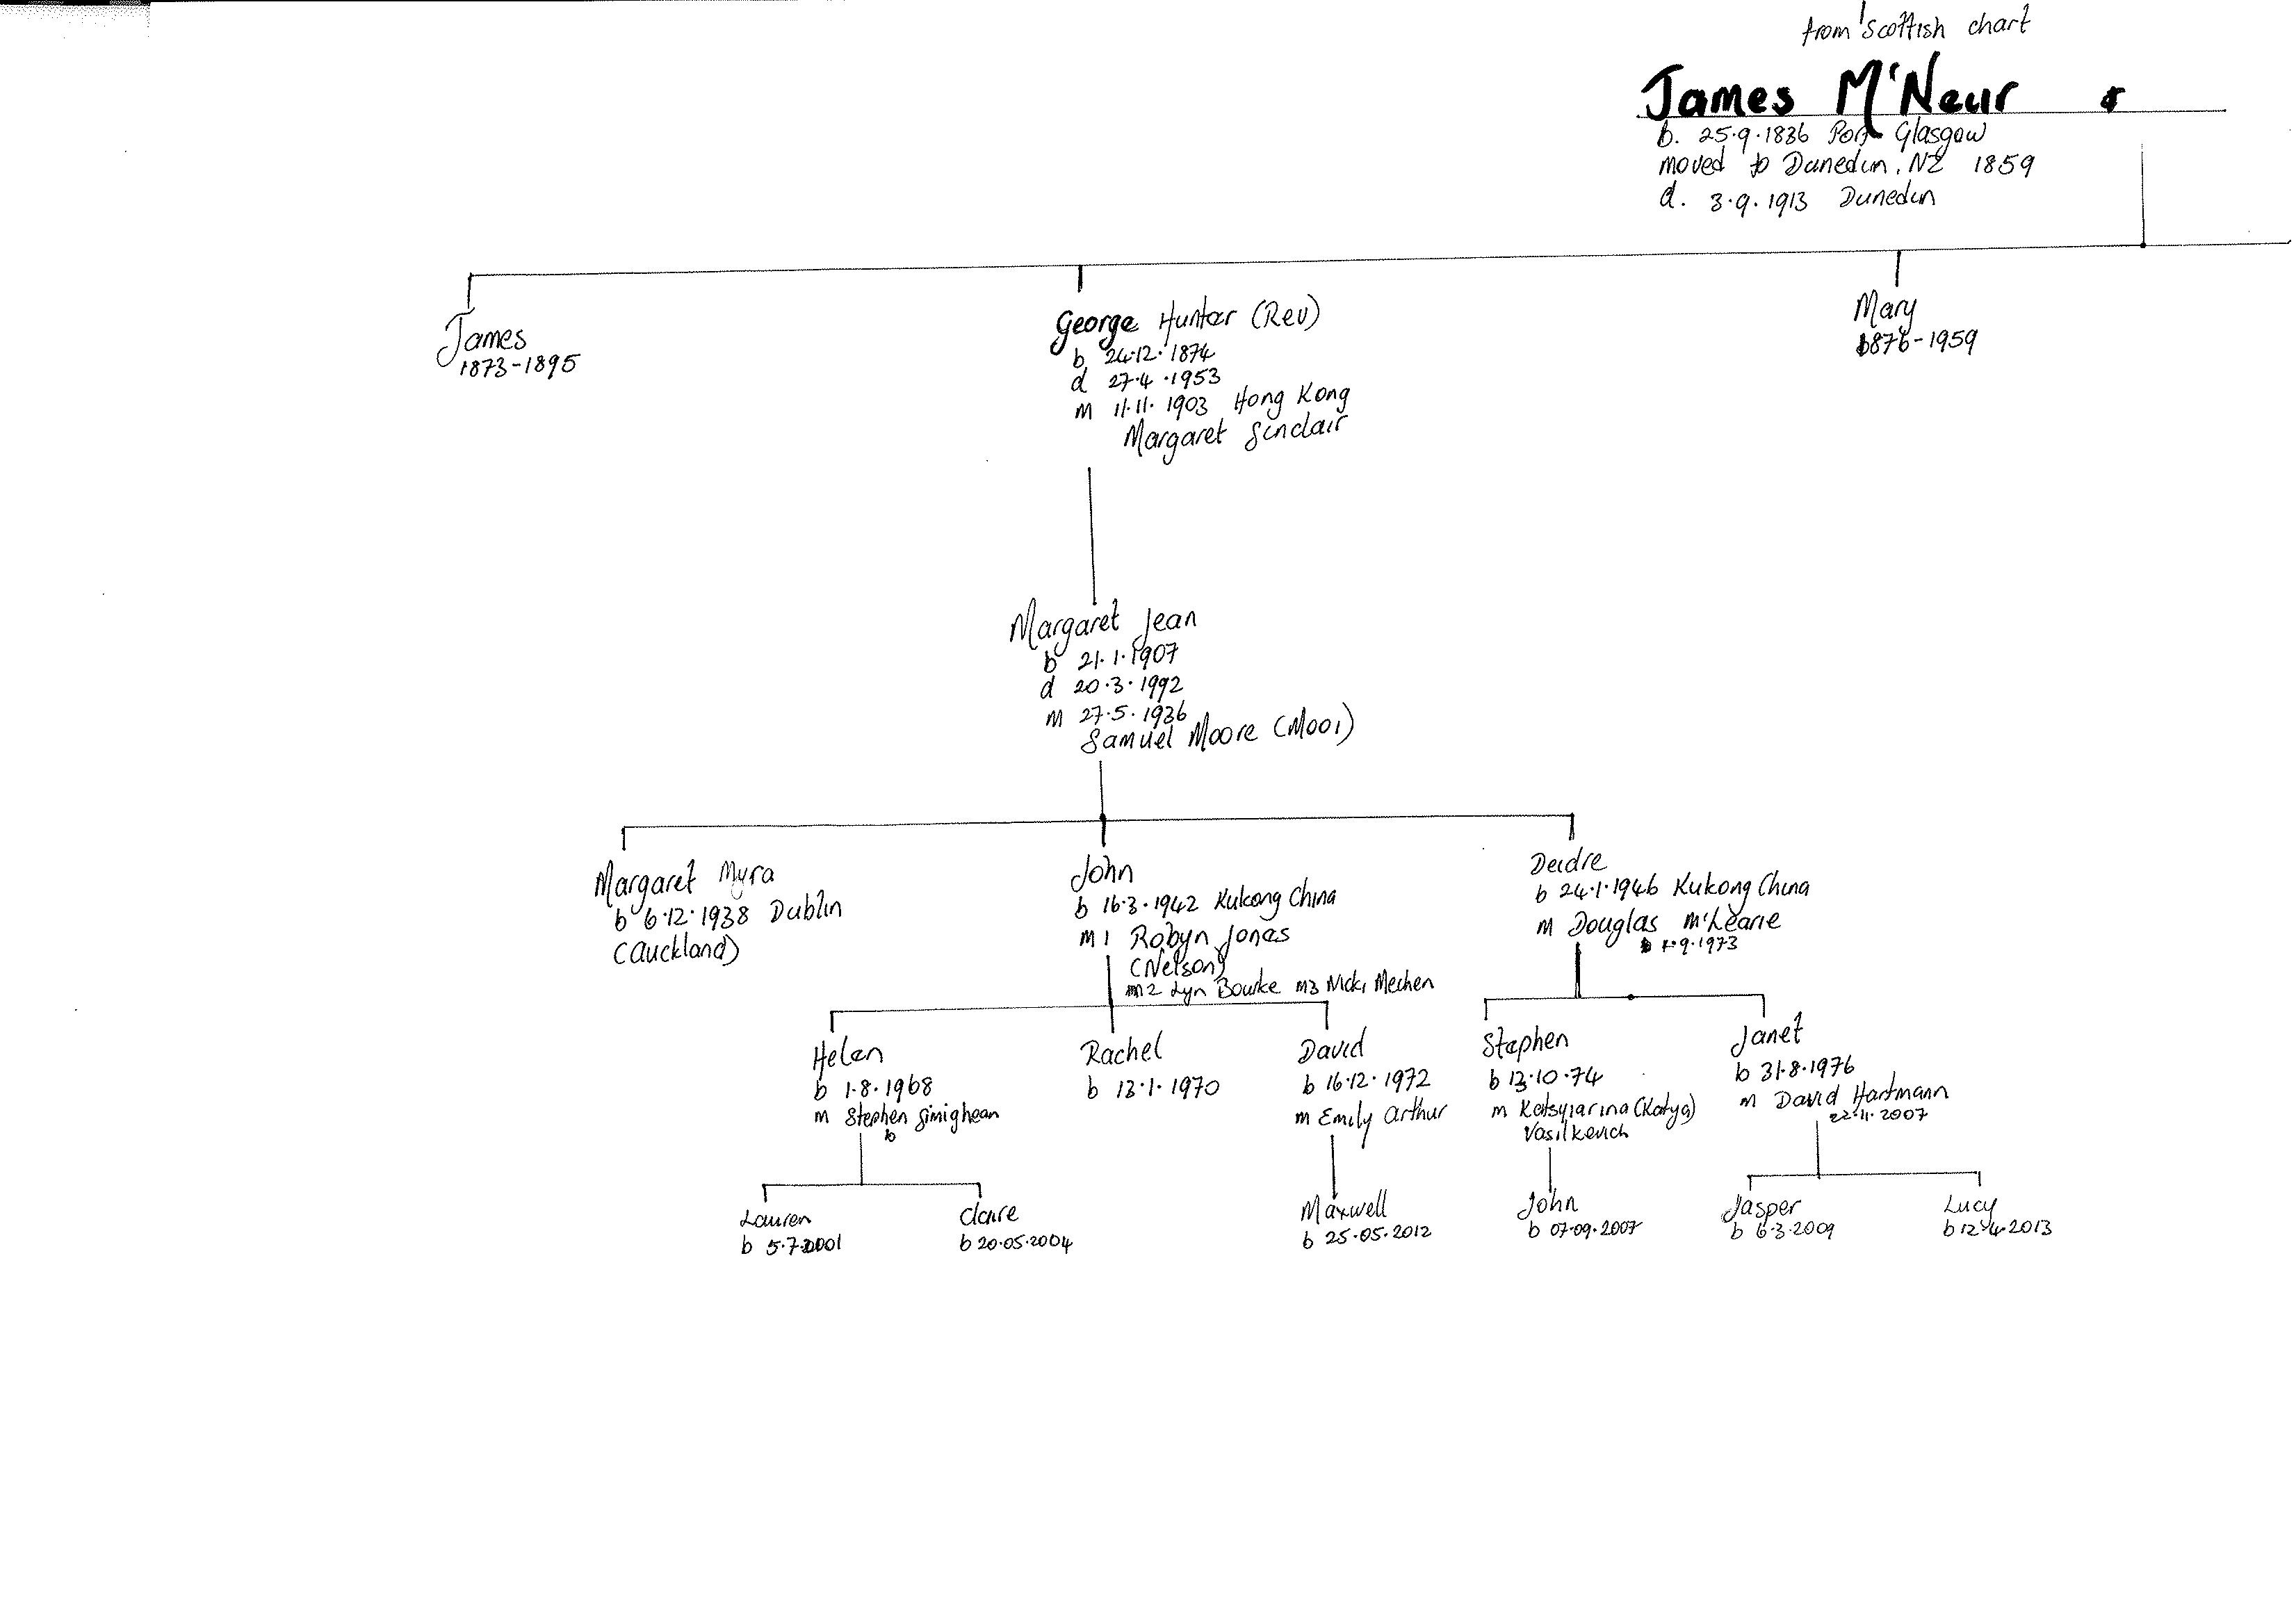 from Scottish chart
James M'Neur &
b. 25.9.1836 Port Glasgow
moved to Dunedin, NZ 1859
d. 3.9.1913 Dunedin
James
1873-1895
George Hunter (Rev)
b 24.12.1874
d 27.4.1953
m 11.11.1903 Hong Kong
Margaret Sinclair
Mary
1876-1959
Margaret Jean
b 21.1.1907
d 20.3.1992
m 27.5.1936
Samuel Moore (Mooi)
Margaret Myra
b 6.12.1938 Dublin
(Auckland)
John
b 16.3.1942 Kukong China
m1 Robyn Jonas
(Nelson)
m2 Lyn Bourke m3 Nicki Mechen
Deidre
b 24.1.1946 Kukong China
m Douglas M'Learie
1.9.1973
Helen
b 1.8.1968
m Stephen Simighean
b
Rachel
b 13.1.1970
David
b 16.12.1972
m Emily Arthur
Stephen
b 13.10.74
m Katsyiarina (Katya)
Vasilkevich
Janet
b 31.8.1976
m David Hartmann
22.11.2007
Lauren
b 5.7.2001
Claire
b 20.05.2004
Maxwell
b 25.05.2012
John
b 07.09.2007
Jasper
b 6.3.2009
Lucy
b 12.4.2013